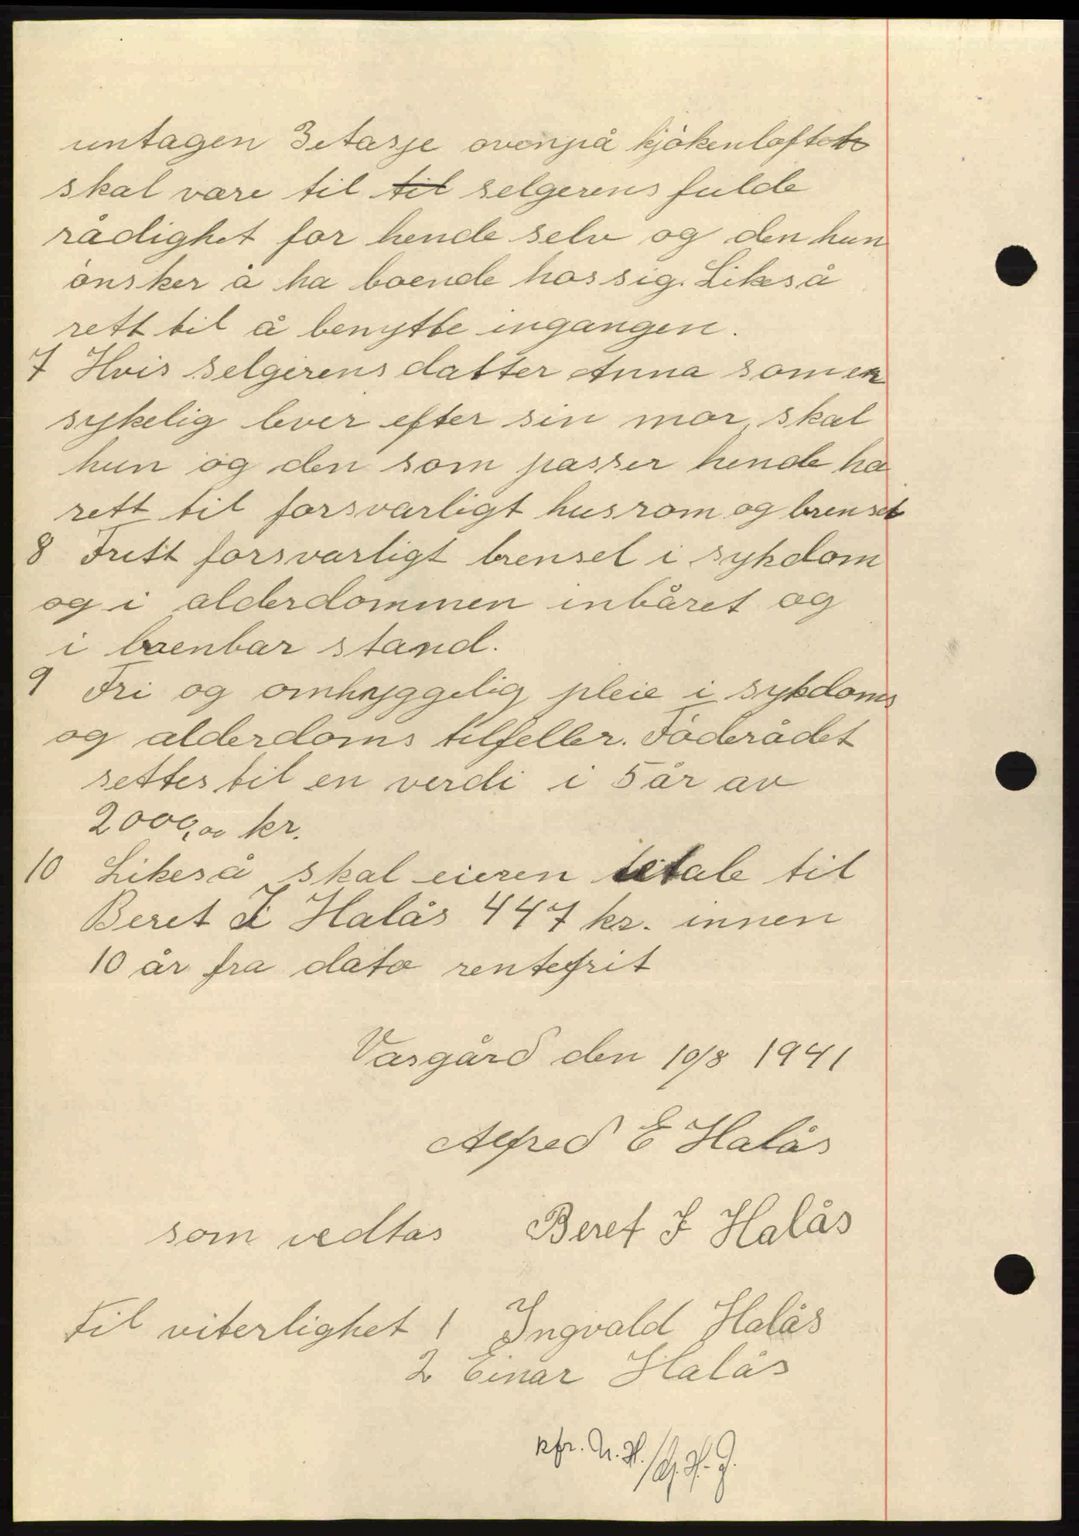 untagen 3 etasje ovenpå kjökenloftet
skal være til til selgerens fulde
rådighet for hende selv og den hun
önsker å ha boende hos sig. Likeså
rett til å benytte ingangen.
7 Hvis selgerens datter Anna som er
sykelig lever efter sin mor, skal
hun og den som passer hende ha
rett til forsvarligt husrom og brensel
8 Fritt forsvarligt brensel i sykdom
og i alderdommen inbåret og
i brenbar stand.
9 Fri og omhyggelig pleie i sykdoms
og alderdoms tilfeller. Föderådet
settes til en verdi i 5 år av
2000,00 kr.
10 Likeså skal eieren betale til
Beret J Halås 447 kr. innen
10 år fra dato rentefrit
Vasgård den 10/8 1941
Alfred E Halås
som vedtas Beret J Halås
Til viterlighet 1 Ingvald Halås
2 Einar Halås
kfr. N.H./G.H-J.